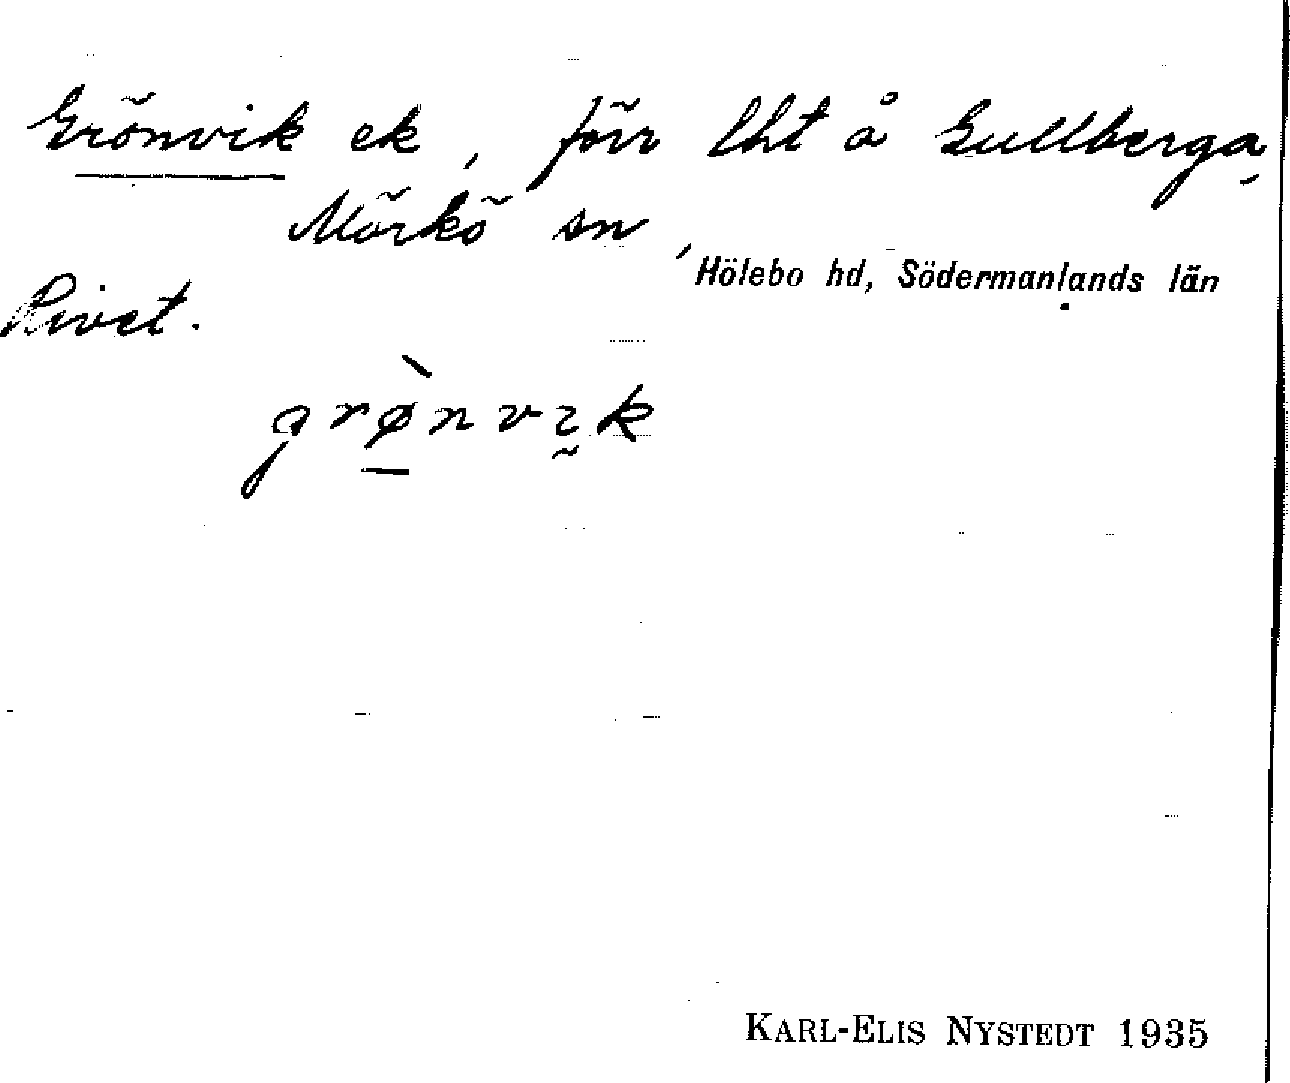 Grönvik ek, förr lht å Gullberga,
Mörkö sn,
Hölebo hd, Södermanlands län
Rivet.
grø̀nvɩk
KARL-ELIS NYSTEDT 1935